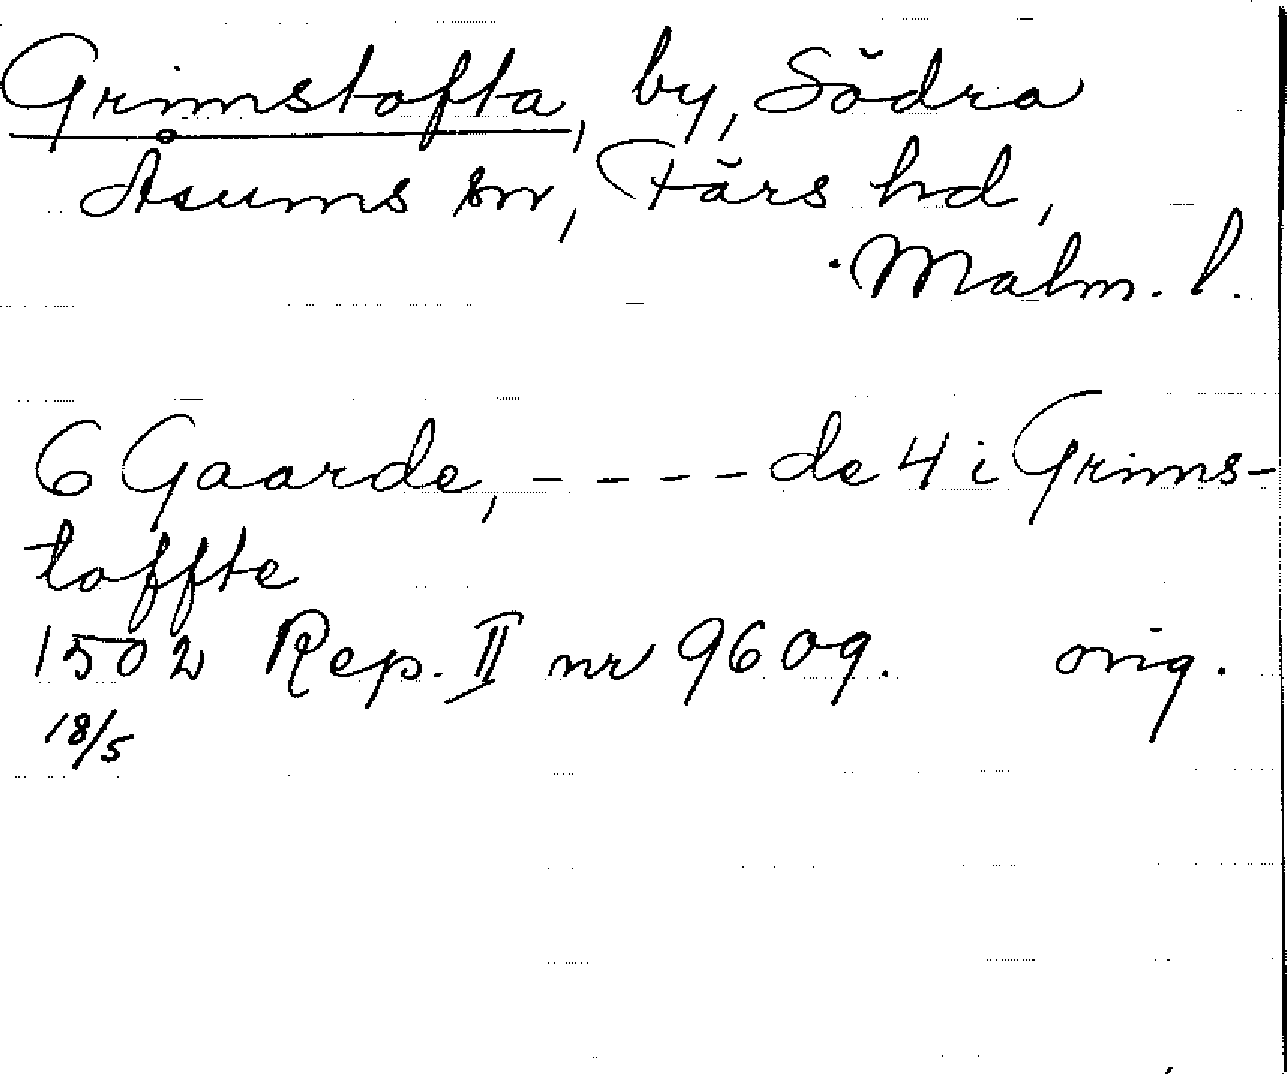 Grimstofta, by, Södra
Åsums sn, Färs hd,
Malm. l.
6 Gaarde, - - - - de 4 i Grims-
toffte
1502 Rep. II nr 9609. orig.
18/5